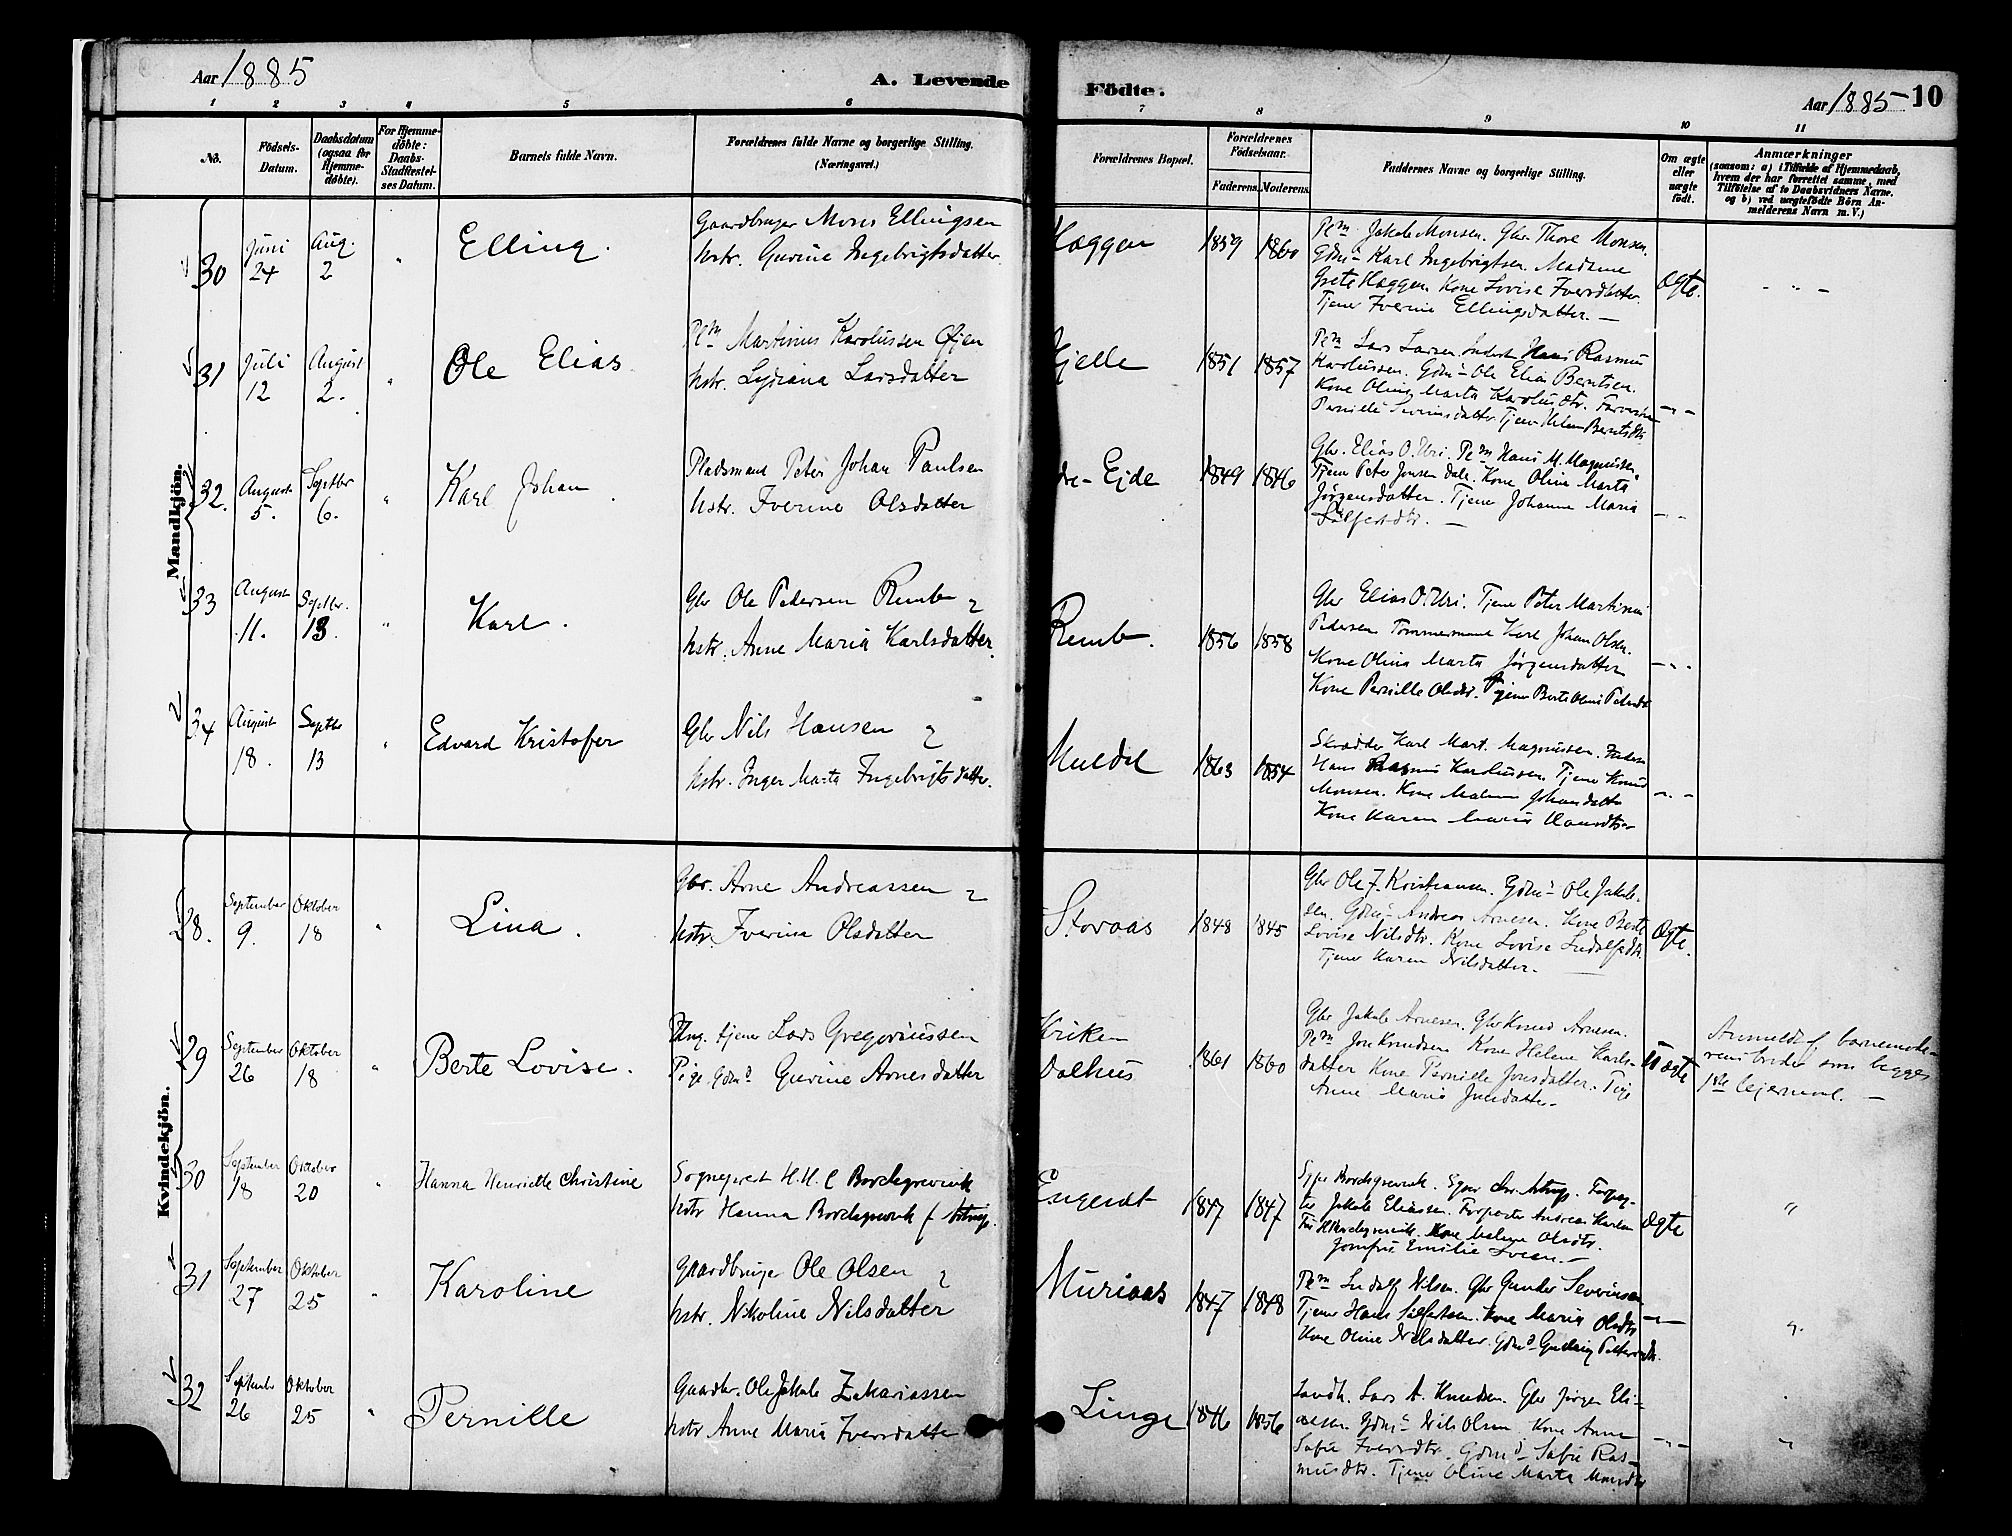 Aar 1885
A. Levende
Födte.
Aar 1885
10
1 2 3 4 5 6 7 8 9 10 11
No.
Födsels-
Datum.
Daabsdatum
(ogsaa for
Hjemme-
döbte).
For Hjemme-
döbte:
Daabs-
Stadfæstel-
ses Datum.
Barnets fulde Navn.
Forældrenes fulde Navne og borgerlige Stilling.
(Næringsvei.)
Forældrenes Bopæl.
Forældrenes
Födselsaar.
Faderens. Moderens.
Faddernes Navne og borgerlige Stilling.
Om ægte
eller
uægte
födt.
Anmærkninger
(saasom: a) i Tilfælde af Hjemmedaab,
hvem der har forrettet samme, med
Tilföielse af to Daabsvidners Navne.
og b) ved uægtefödte Börn An-
melderens Navn m. V.)
Mandkjön.
30
Juni
24
Aug.
2
"
Elling.
Gaardbruger Mons Ellingsen
Hstr. Gurine Ingebrigtsdatter.
Haggen
1859 1860
Pm Jakob Monsen. Gbr Thore Monsen.
Gdms Karl Ingebrigtsen. Madame
Grete Haggen. Kone Lovise Iversdatter
Tjener Iverine Ellingsdatter. —
Ægte.
- " -
31
Juli
12
August
2.
"
Ole Elias
Pm Martinus Karolussen Øjen
Hstr. Lydiana Larsdatter
Hjelle
1851 1857
Pm Lars Larsen. Inderst Hans Rasmus
Karolussen. Gdms Ole Elias Berntsen.
Kone Oline Marta Karolusdtr.
Pernille Severinsdatter. Tjener Helene Berntsdtr
- " -
32.
August
5.
Septbr
6.
"
Karl Johan
Pladsmand Peter Johan Paulsen
Hstr. Iverine Olsdatter
dre-Ejde
1849 1846
Gbr. Elias O. Uri. Pm Hans M. Magnussen.
Tjener Peter Jonsen Dale. Kone Oline Marta
Jørgensdatter. Tjener Johanne Maria
- " -
33
August
11.
Septbr.
13.
"
Karl.
Gbr Ole Pedersen Remb
Hstr. Anne Maria Karlsdatter.
Remb.
1856 1858
Gbr Elias O. Uri. Tjener Peter Martinus
Pedersen Tømmermand Karl Johan Olsen.
Kone Oline Marta Jørgensdatter
Kone Pernille Olsdtr. Tjener Berte Oline Pedersdtr
- " -
34
August
18.
Septbr
13
"
Edvard Kristofer
Gbr Nils Hansen
Hstr. Inger Marta Ingebrigtsdatter.
Muldal
1863 1854
Skrædder Karl Mart. Magnussen. Inderst
Hans Rasmus Karolussen. Tjener Knud
Monsen. Kone Malene Johansdatter
Kone Karen Maria Hansdtr
- " -
Kvindekjön.
28.
September
9.
Oktober
18
"
Lina.
Gbr. Arne Andreassen
Hstr. Iverine Olsdatter
Storaas
1848 1845
Gbr Ole J. Kristiansen. Gdms Ole Jakob-
sen. Gdms Andreas Arnesen. Kone Berte
Lovise Nilsdtr. Kone Lovise Ludolfsdtr.
Tjener Karen Nilsdatter.
Ægte.
29
September
26
Oktober
18
"
Berte Lovise.
Ung. tjener Lars Gregoriussen
Pige Gdms Gurine Arnesdatter
Kriken
Dalhus
1861 1860
Gbr Jakob Arnesen. Gbr Knud Arnesen.
Pm Jon Knudsen Kone Helene Karls-
datter Kone Pernille Jonsdatter. Pige
Anne Maria Jonsdatter.
Uægte
Anmeldt af barnemode-
rens broder som begges
1ste lejermaal. —
30
September
18
Oktober
20
"
Hanna Henriette Christine
Sognepræst H. H. C Bordegrevink
Hstr Hanna Bordegrevink f Astrup.
Engeset
1847 1847
Spr Bordegrevink. Chr. Astrup. Forpag-
ter Jakob Eliassen. Forpagter Andreas Karlsen
Fru H Bordegrevink. Kone Malene Olsdtr.
Jomfru Emilie Sveen. —
Ægte
"
31
September
27
Oktober
25
"
Karoline
Gaardbruger Ole Olsen
Hstr. Nikoline Nilsdatter
Muriaas
1847 1848
Pm Ludolf Nilsen. Gbr Gunder Severinsen
Tjener Hans Sølfestsen. Kone Maria Olsdtr
Kone Oline Nilsdatter. Gdmd Gurine Pettersdtr.
- " -
"
32
Septembr
26
Oktober
25
"
Pernille
Gaardbr. Ole Jakob Zakariassen
Hstr Anne Maria Iversdatter
Linge
1846 1856
Landh. Lars A. Knudsen. Gbr Jørgen Eli-
assen. Gdms Nils Olsen. Kone Anne
Sofie Iversdtr. Gdmd Sofie Ras-
musdtr. Tjener Oline Marta Monsdtr
- " -
"